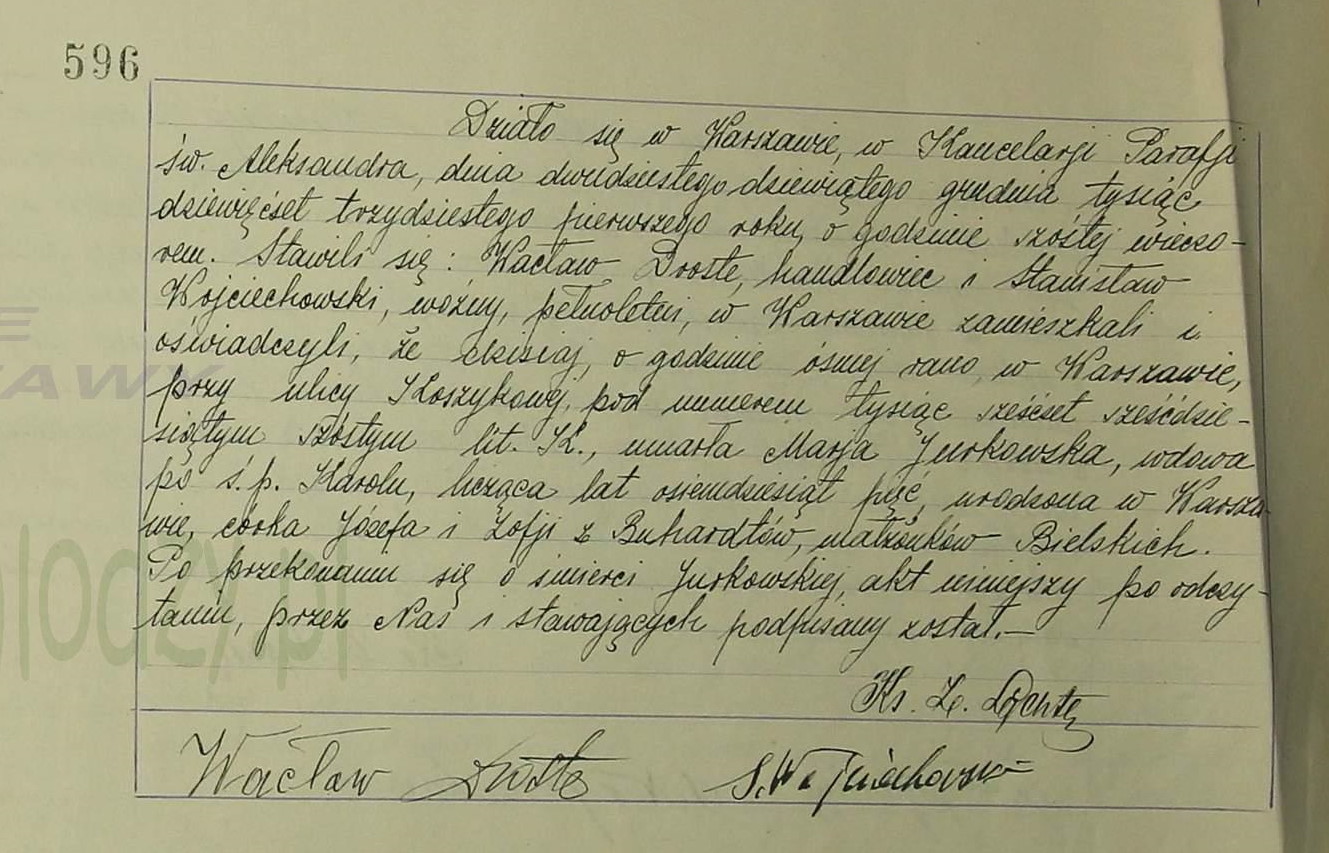 596
Działo się w Warszawie, w Kancelarji Parafji
św. Aleksandra, dnia dwudziestego dziewiątego grudnia tysiąc
dziewięćset trzydziestego pierwszego roku, o godzinie szóstej wieczo-
rem. Stawili się: Wacław Droste, handlowiec i Stanisław
Wojciechowski, woźny, pełnoletni, w Warszawie zamieszkali i
oświadczyli, że dzisiaj, o godzinie ósmej rano, w Warszawie,
przy ulicy Koszykowej, pod numerem tysiąc sześćset sześćdzie-
siątym szóstym lit. K., umarła Marja Jurkowska, wdowa
po ś.p. Karolu, licząca lat osiemdziesiąt pięć, urodzona w Warsza-
wie, córka Józefa i Zofji z Buhardtów, małżonków Bielskich.
Po przekonaniu się o śmierci Jurkowskiej, akt niniejszy po odczy-
taniu, przez Nas i stawających podpisany został.—
Ks. Z.
Wacław Droste S. Wojciechowski
AWK
lodzy.pl